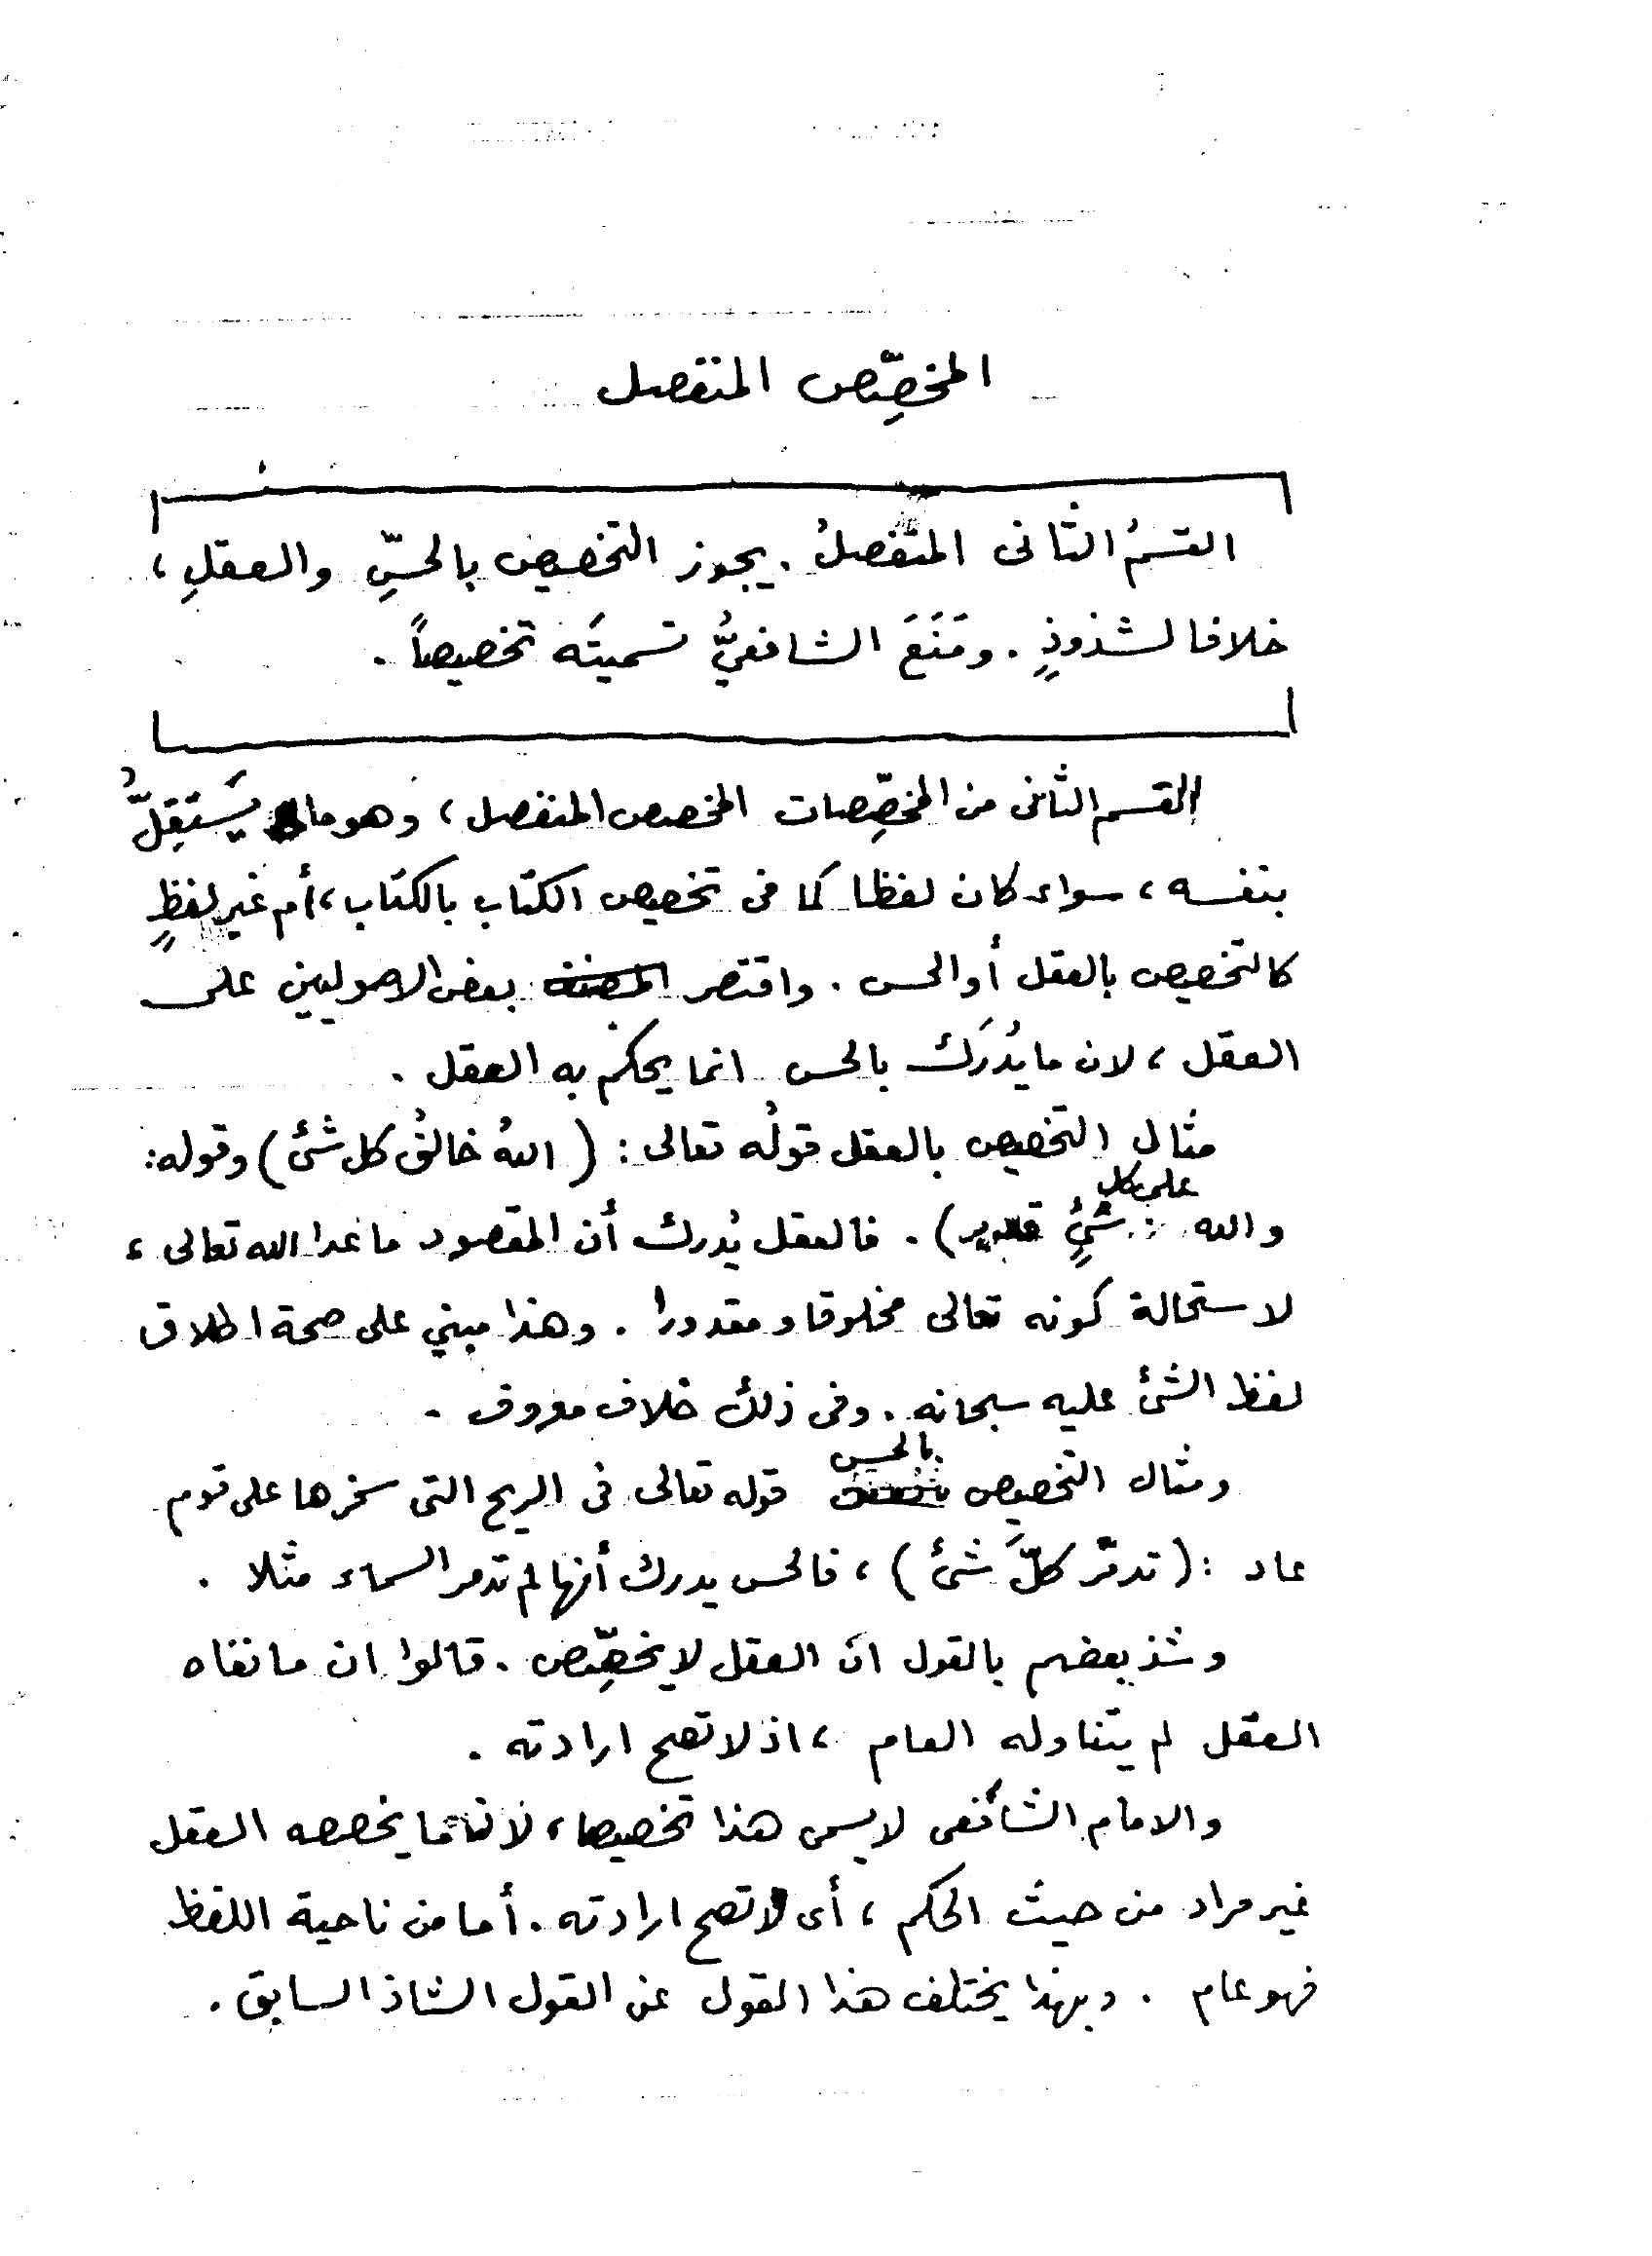 المخصِّص المنفصل
القسمُ الثانى المنفصلُ . يجوز التخصيص بالحسِّ والعقلِ ،
خلافا لشذوذٍ . ومَنَعَ الشافعيُّ تسميتَه تخصيصاً .
القسم الثانى من المخصِّصات المخصص المنفصل ، وهو ما يَستَقِلُّ
بنفسه ، سواء كان لفظا كما فى تخصيص الكتاب بالكتاب ، أم غير لفظٍ
كالتخصيص بالعقل أو الحس . واقتصر بعض الاصوليين على
العقل ، لان ما يُدرَك بالحس انما يحكم به العقل .
مثال التخصيص بالعقل قولُه تعالى : ( اللهُ خالقُ كل شئ ) وقوله :
والله على كل شئٍ قدير ) . فالعقل يُدرك أن المقصود ما عدا الله تعالى ،
لاستحالة كونه تعالى مخلوقا و مقدورا . وهذا مبني على صحة اطلاق
لفظ الشئ عليه سبحانه . وفى ذلك خلاف معروف .
ومثال التخصيص بالحس قوله تعالى فى الريح التى سخرها على قوم
عاد : ( تدمّر كلَّ شئ ) ، فالحس يدرك أنها لم تدمر السماء مثلا .
وشذ بعضهم بالقول انّ العقل لا يخصِّص . قالوا ان ما نفاه
العقل لم يتناوله العام ، اذ لا تصح ارادته .
والامام الشافعى لا يسمى هذا تخصيصا ، لان ما يخصصه العقل
غير مراد من حيث الحكم ، أى لا تصح ارادته . أما من ناحية اللفظ
فهو عام . وبهذا يختلف هذا القول عن القول الشاذ السابق .